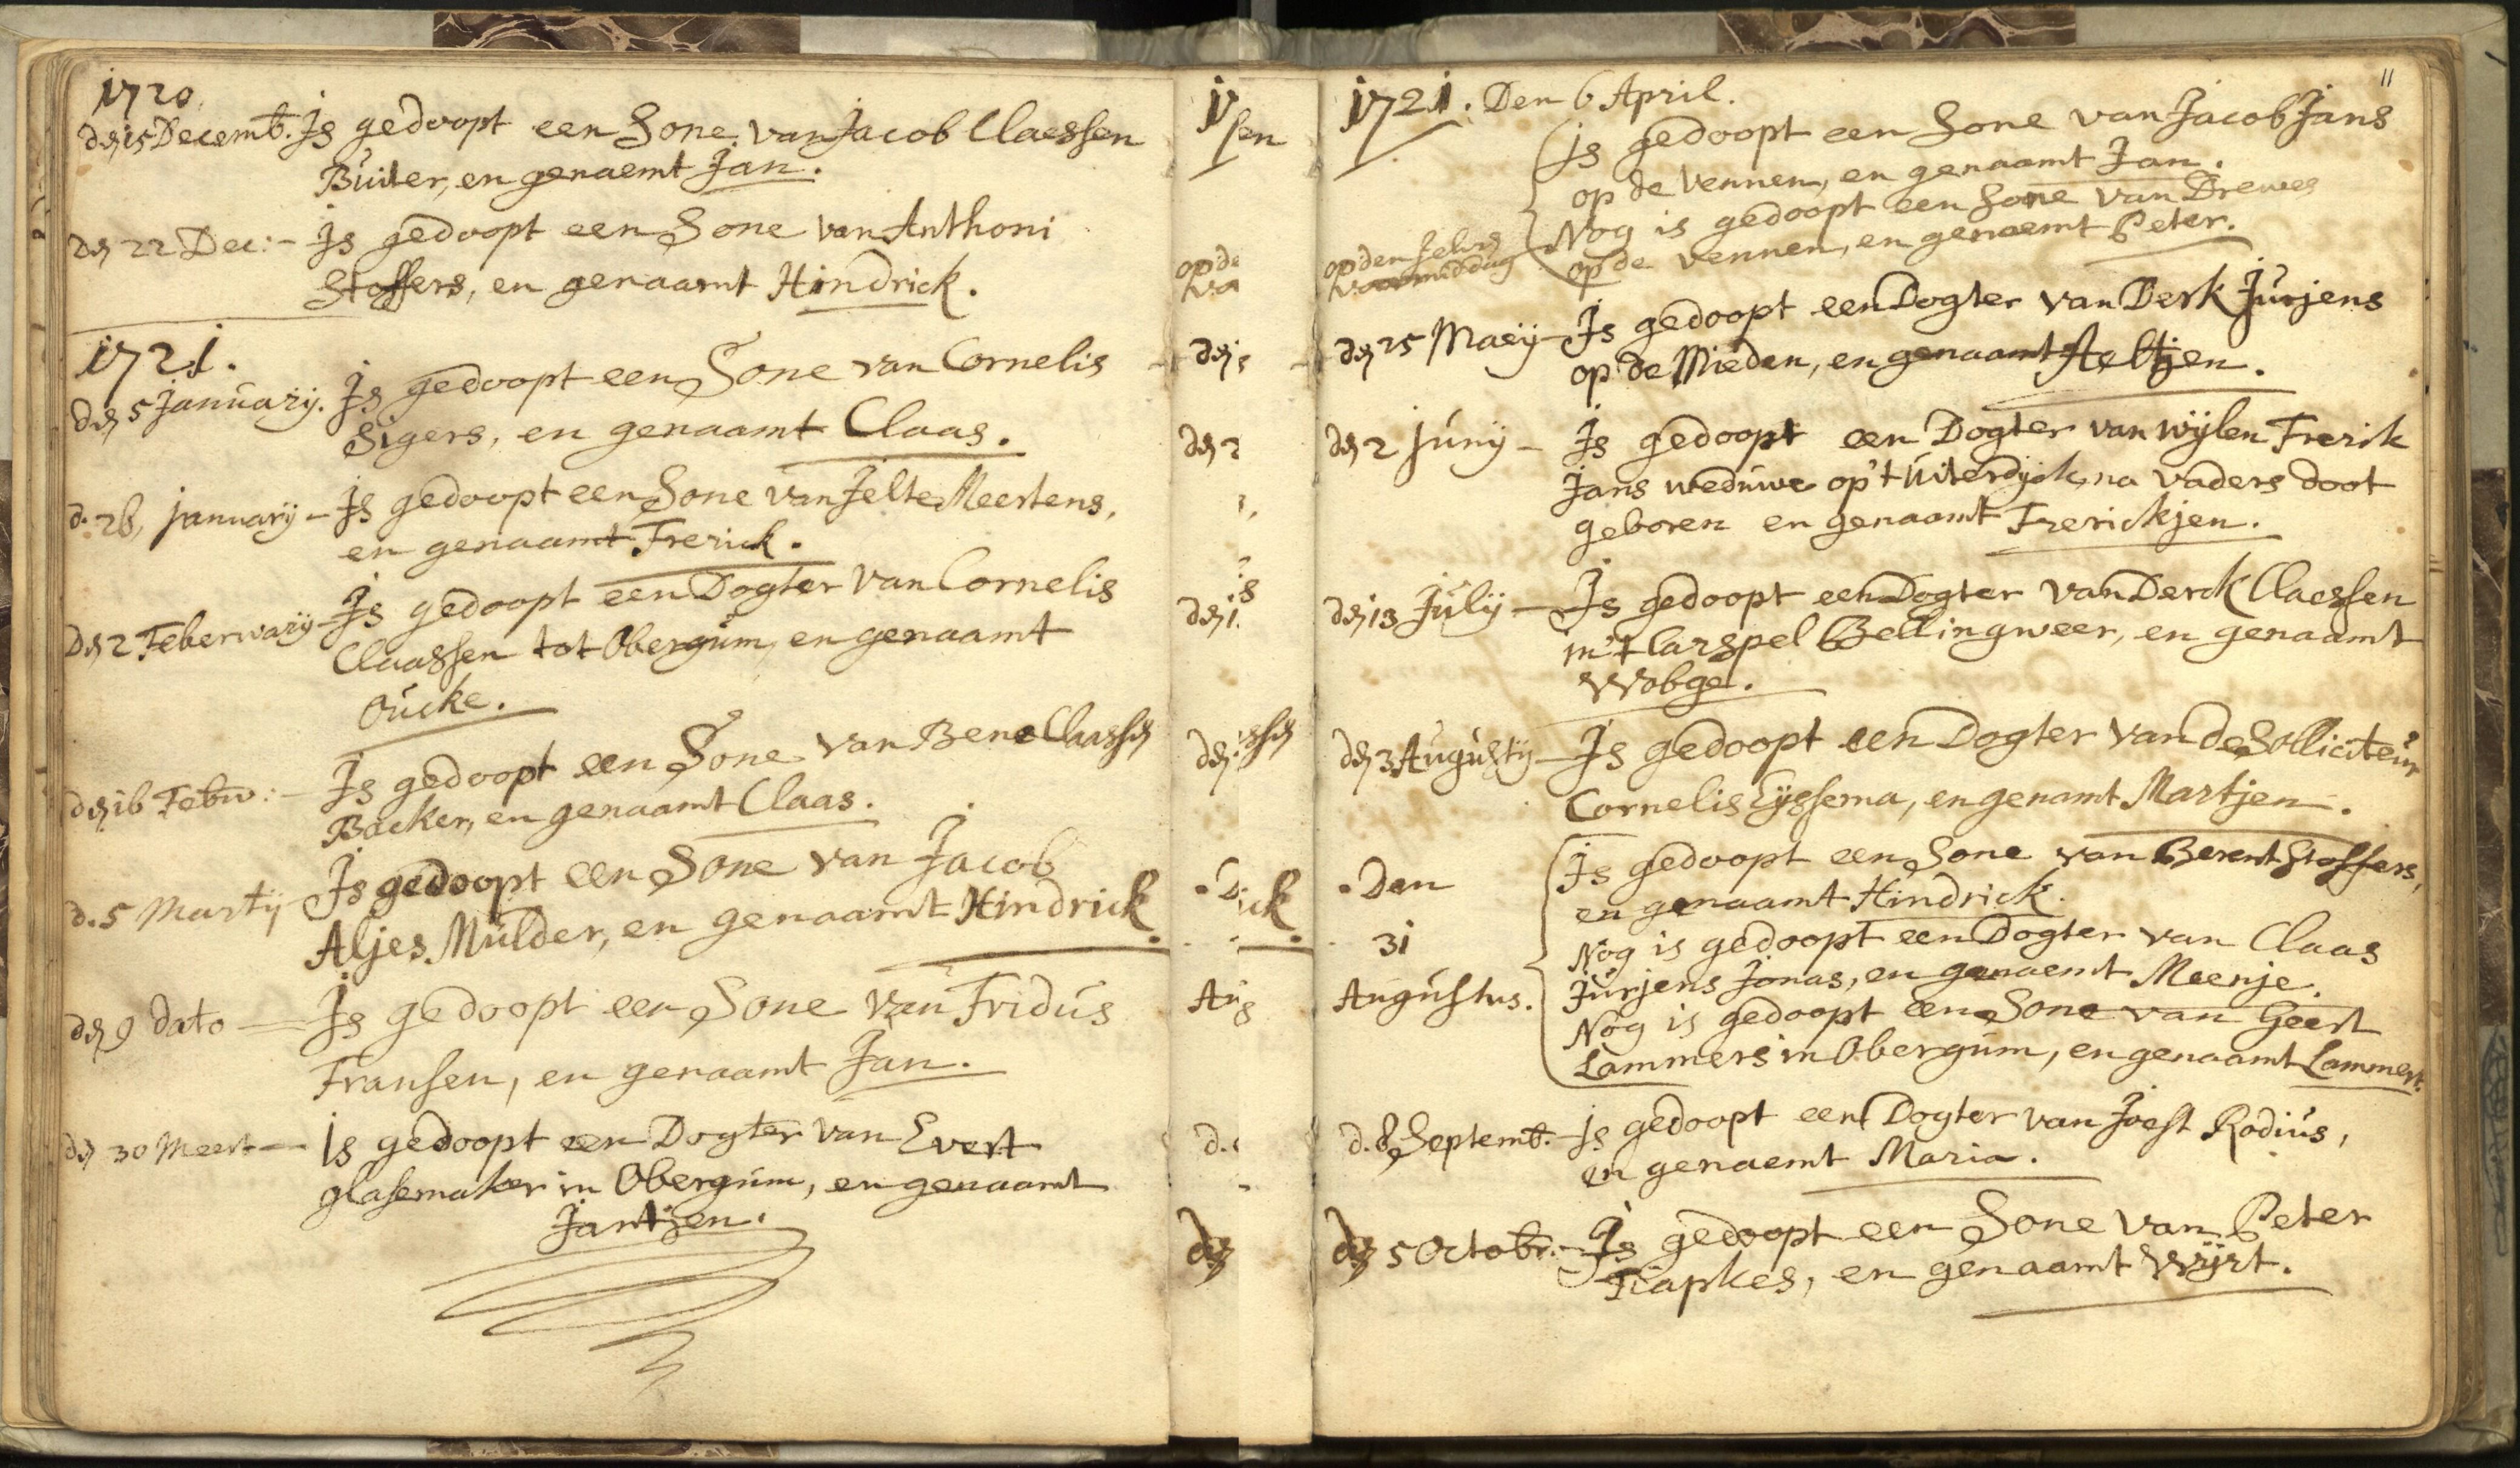 1720.
den 15 Decemb. Is gedoopt een Sone van Jacob Claessen
Buiter, en genaemt Jan.
den 22 Dec: - Is gedoopt een Sone van Anthoni
Stoffers, en genaamt Hindrick.
1721.
den 5 January. Is gedoopt een Sone van Cornelis
Sigers, en genaamt Claas.
d. 26, january - Is gedoopt een Sone van Jelte Meertens,
en genaamt Frerick.
den 2 Feberwary - Is gedoopt een Dogter van Cornelis
Claassen tot Obergum, en genaamt
Oucke.
den 16 Febw: - Is gedoopt een Sone van Bene Claassen
Backer, en genaamt Claas.
d. 5 Martij Is gedoopt een Sone van Jacob
Aljes Mulder, en genaamt Hindrick.
den 9 dato - Is gedoopt een Sone van Fridus
Fransen, en genaamt Jan.
den 30 Meert - Is gedoopt een Dogter van Evert
glasemaker in Obergum, en genaamt
Jantjen.
11
1721. Den 6 April.
Is gedoopt een Sone van Jacob Jans
op de Vennen, en genaamt Jan.
Nog is gedoopt een Sone van Drewes
op den selven voormiddag op de Vennen, en genaemt Peter.
den 25 Maey - Is gedoopt een Dogter van Derk Jurjens
op de Mieden, en genaamt Aeltjen.
den 2 Juny - Is gedoopt een Dogter van wylen Frerik
Jans weduwe op 't Uiterdyck, na vaders doot
geboren en genaamt Frerickjen.
den 13 July - Is gedoopt een Dogter van Derck Claessen
in 't Carspel Bellingweer, en genaamt
Wobge.
den 3 Augusty - Is gedoopt een Dogter van de Solliciteur
Cornelis Eyssema, en genamt Martjen.
Den 31 Augustus. Is gedoopt een Sone van Berent Stoffers,
en genaamt Hindrick.
Nog is gedoopt een Dogter van Claas
Jurjens Jonas, en genaemt Meenje.
Nog is gedoopt een Sone van Geert
Lammers in Obergum, en genaamt Lammert.
d. 8 Septemb. - Is gedoopt een Dogter van Joest Rodius,
en genaemt Maria.
den 5 Octobr. - Is gedoopt een Sone van Peter
Fiapkes, en genaamt Wyrt.